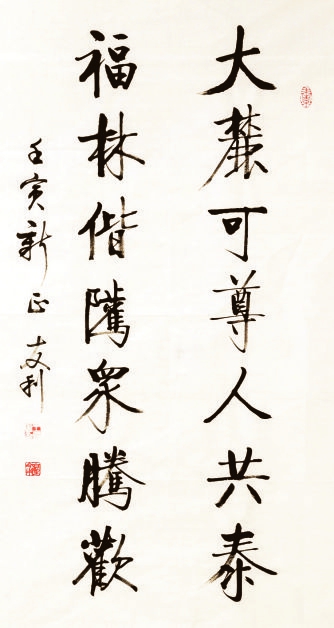 大可尊人共泰
福林偕隲眾騰歡
壬寅新正 友利